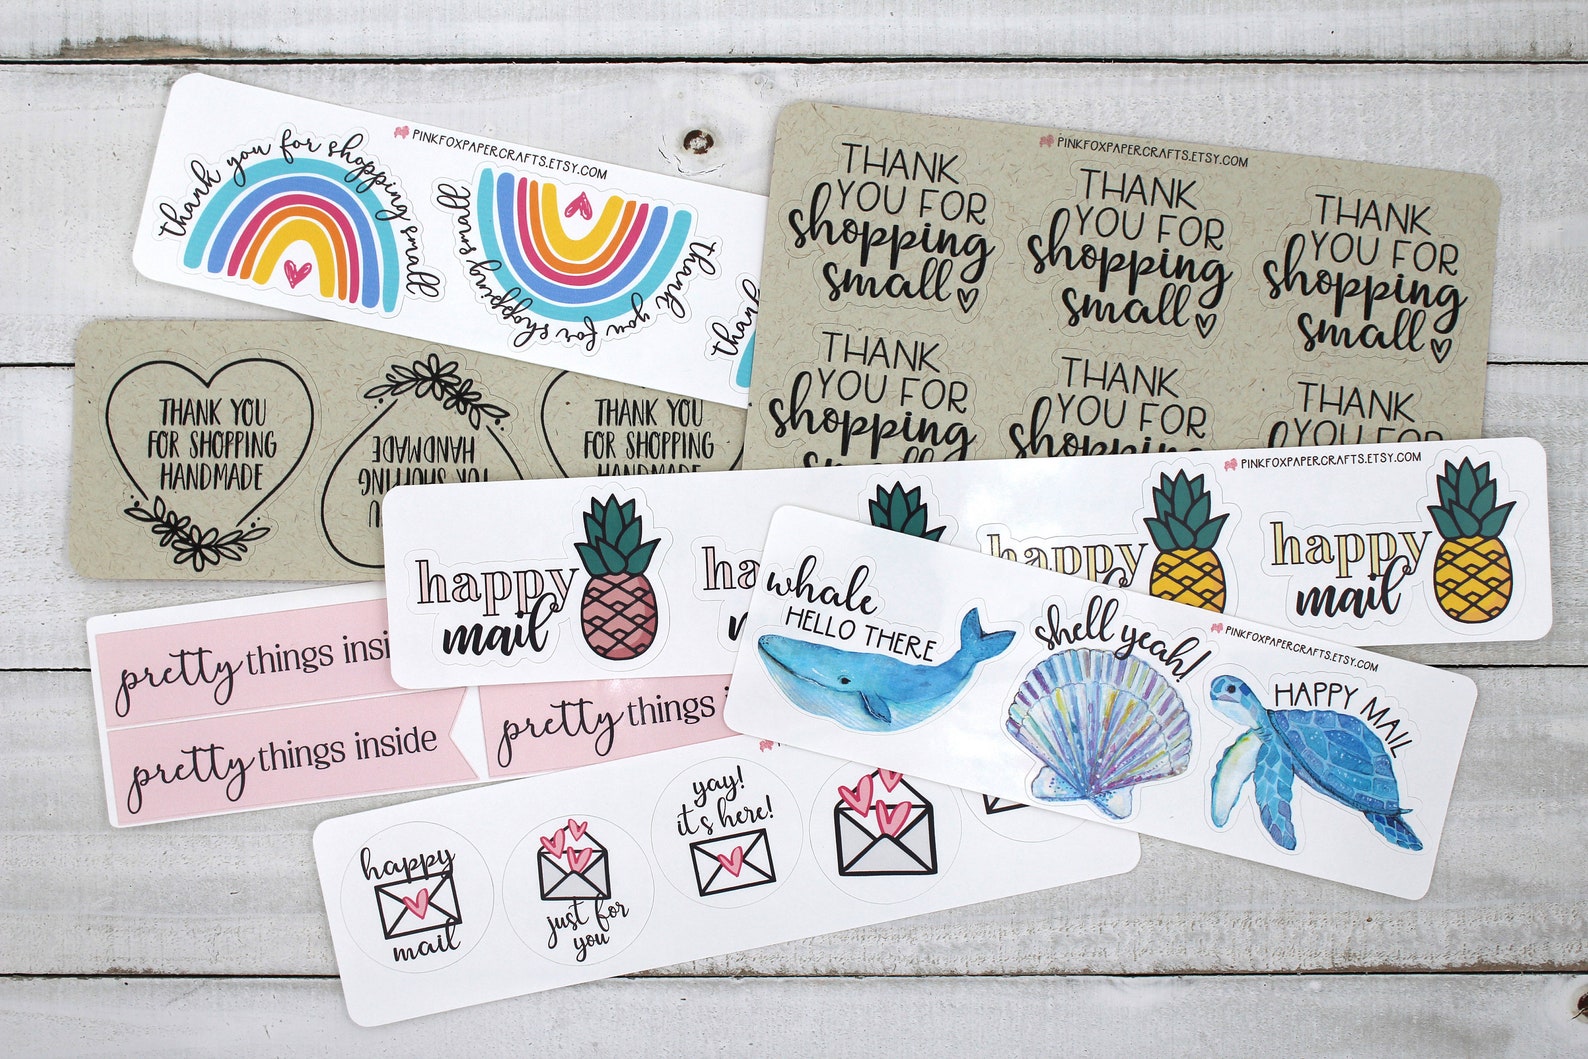 PINKFOXPAPERCRAFTS.ETSY.COM
thank you for shopping small
thank you for shopping small
thank you
PINKFOXPAPERCRAFTS.ETSY.COM
THANK
YOU FOR
shopping
small
THANK
YOU FOR
shopping
small
THANK
YOU FOR
shopping
small
THANK
YOU FOR
shopping
small
THANK
YOU FOR
shopping
THANK
YOU FOR
THANK YOU
FOR SHOPPING
HANDMADE
FOR SHOPPING
HANDMADE
THANK YOU
FOR SHOPPING
HANDMADE
PINKFOXPAPERCRAFTS.ETSY.COM
happy
mail
happy
happy
mail
pretty things insi
pretty things inside
pretty things i
whale
HELLO THERE
shell yeah!
PINKFOXPAPERCRAFTS.ETSY.COM
HAPPY MAIL
happy
mail
just for
you
yay!
it's here!